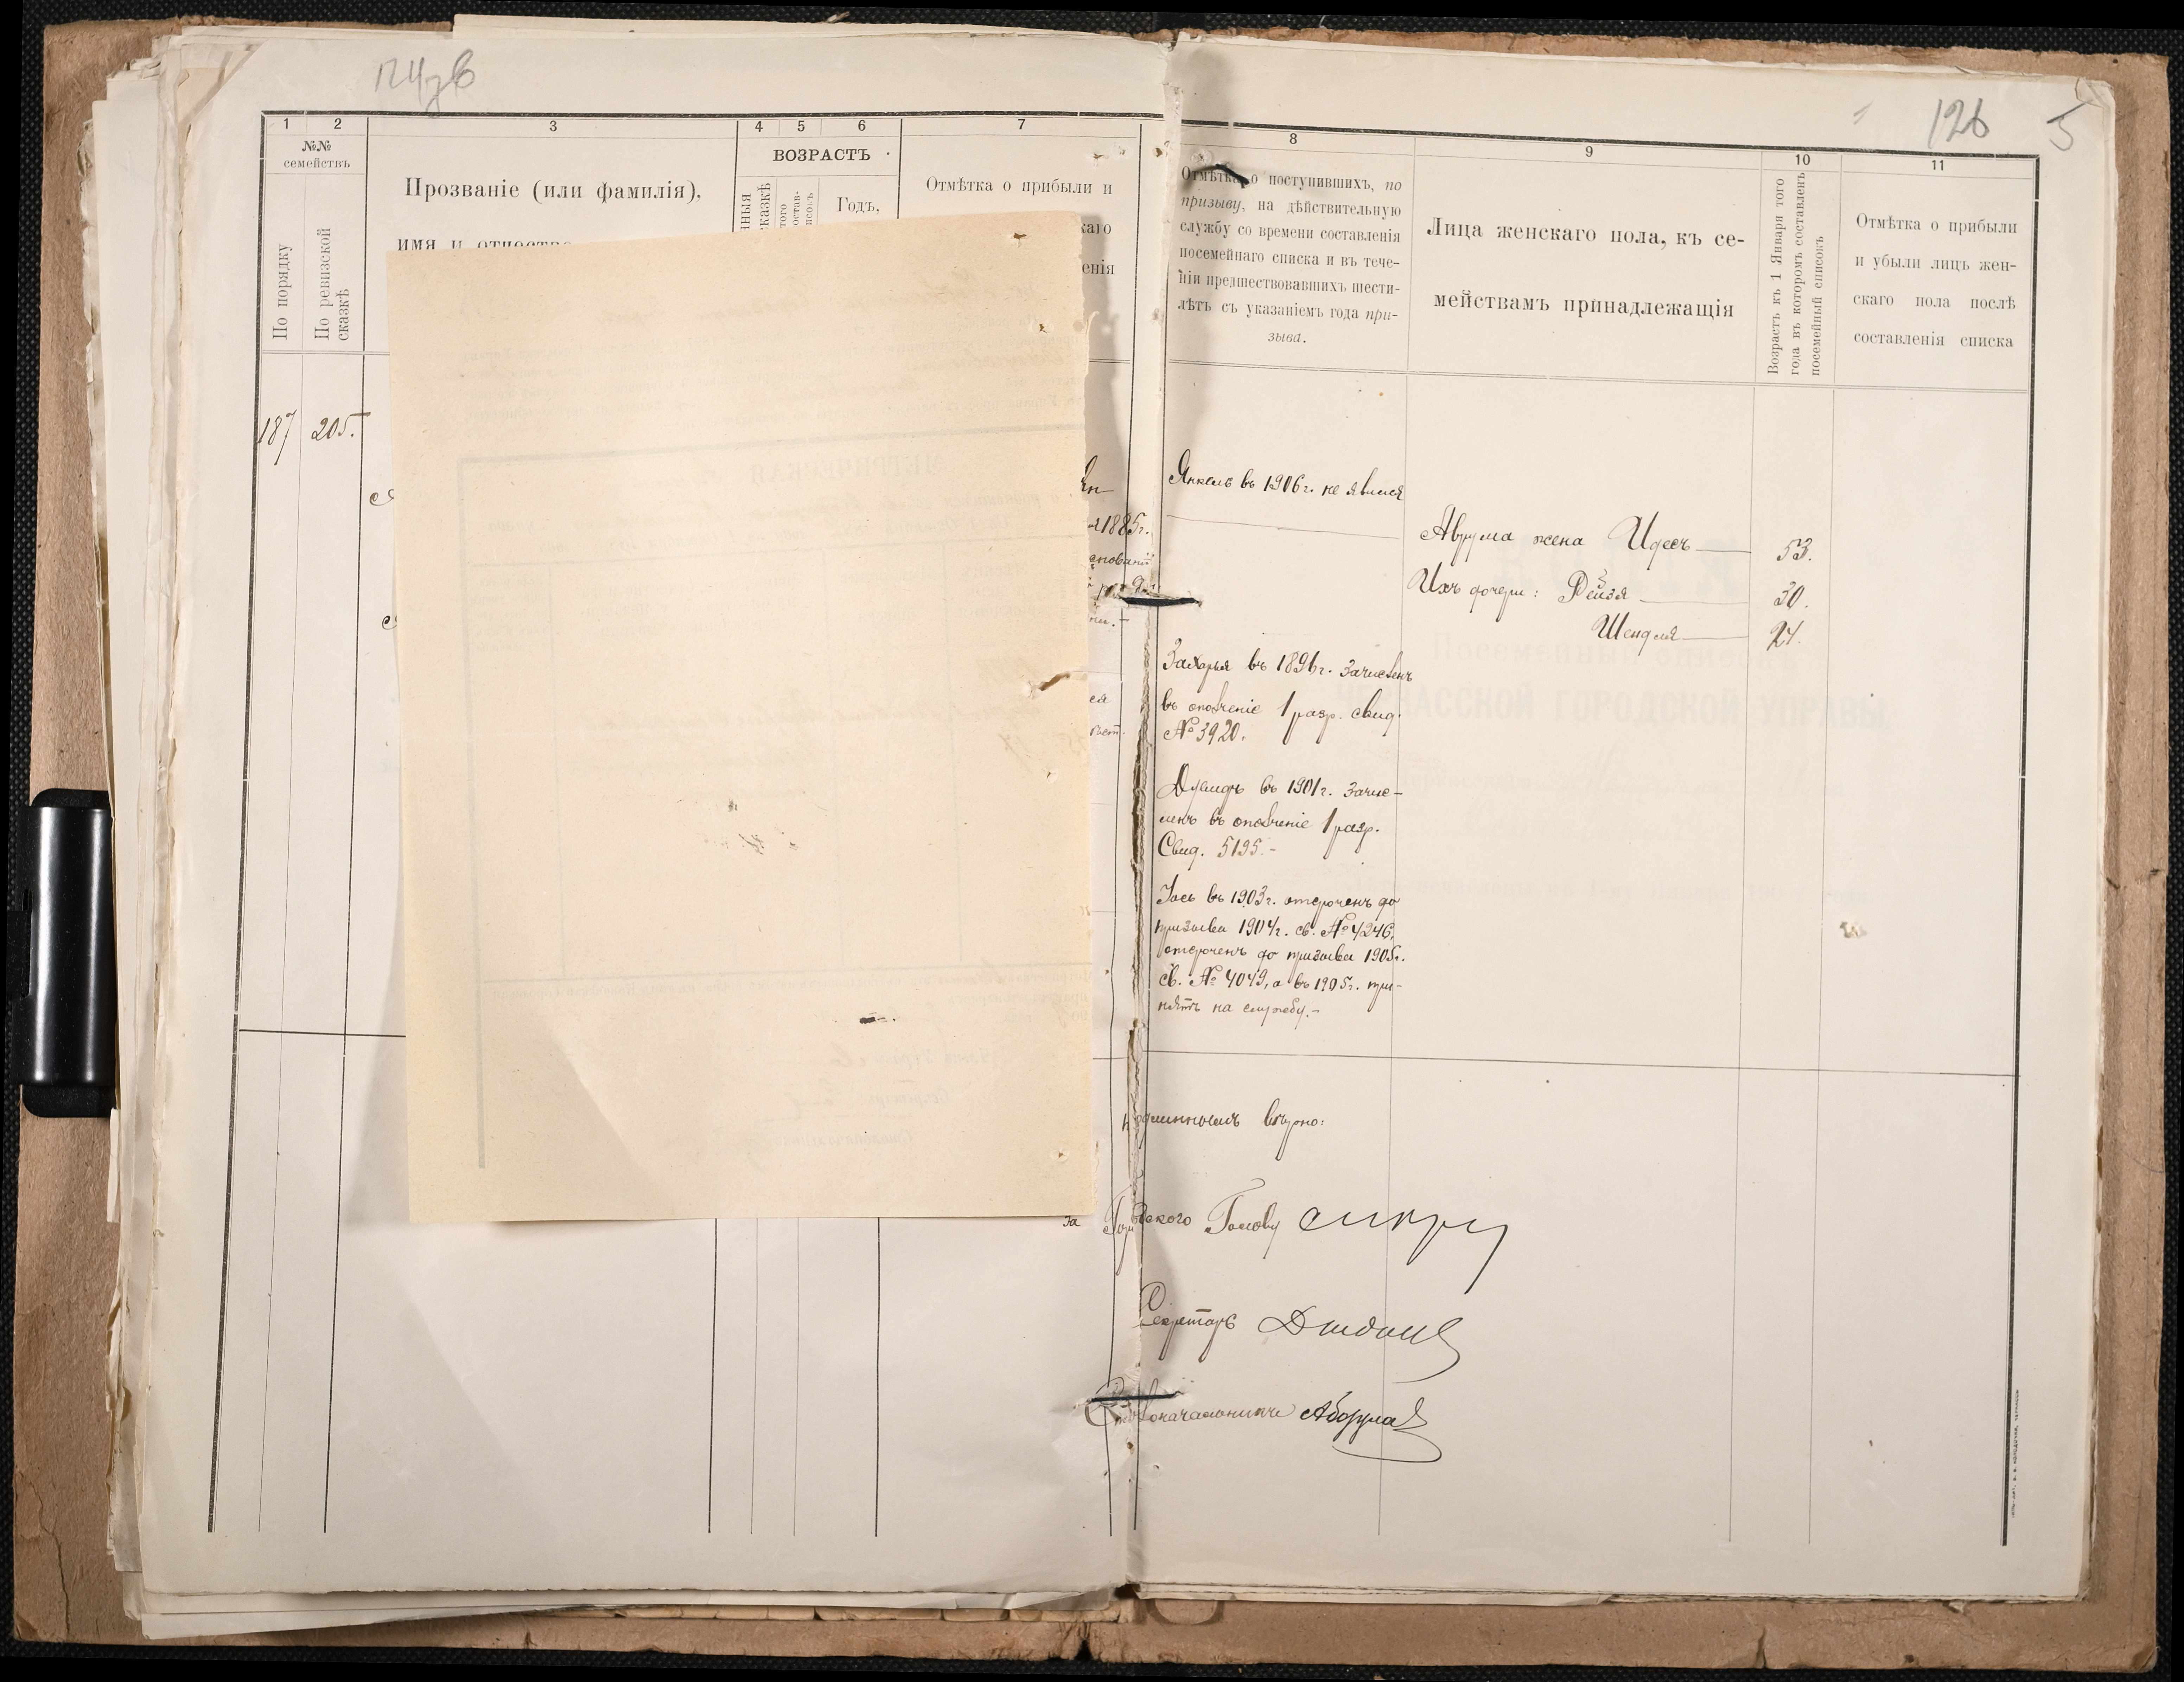 1 2 3 4 5 6 7
№№ семействъ
По порядку
По ревизской сказкѣ
Прозваніе (или фамилія),
имя и отчество
ВОЗРАСТЪ
Годъ,
Отмѣтка о прибыли и
187 205.
1885г.
8 9 10 11
126 5
Отмѣтка о поступившихъ, по
призыву, на дѣйствительную
службу со времени составленія
посемейнаго списка и въ тече-
ніи предшествовавшихъ шести-
лѣтъ съ указаніемъ года при-
зыва.
Лица женскаго пола, къ се-
мействамъ принадлежащія
Возрастъ къ 1 Января того
года въ которомъ составленъ
посемейный списокъ
Отмѣтка о прибыли
и убыли лицъ жен-
скаго пола послѣ
составленія списка
Янкель въ 1906г. не явился
Аврума жена Идесъ 53.
Ихъ дочери: Рейзя 30.
Шендля 24.
Захарья въ 1896г. зачисленъ
въ ополченіе 1 разр. свид.
№ 3920.
Дувидъ въ 1901г. зачис-
ленъ въ ополченіе 1 разр.
Свид. 5195.-
Іось въ 1903г. отсроченъ до
призыва 1904г. св. № 4246,
отсроченъ до призыва 1905г.
св. № 4049, а въ 1905г. при-
нятъ на службу.-
подлиннымъ вѣрно:
За Городского Голову
Секретарь
Столоначальникъ